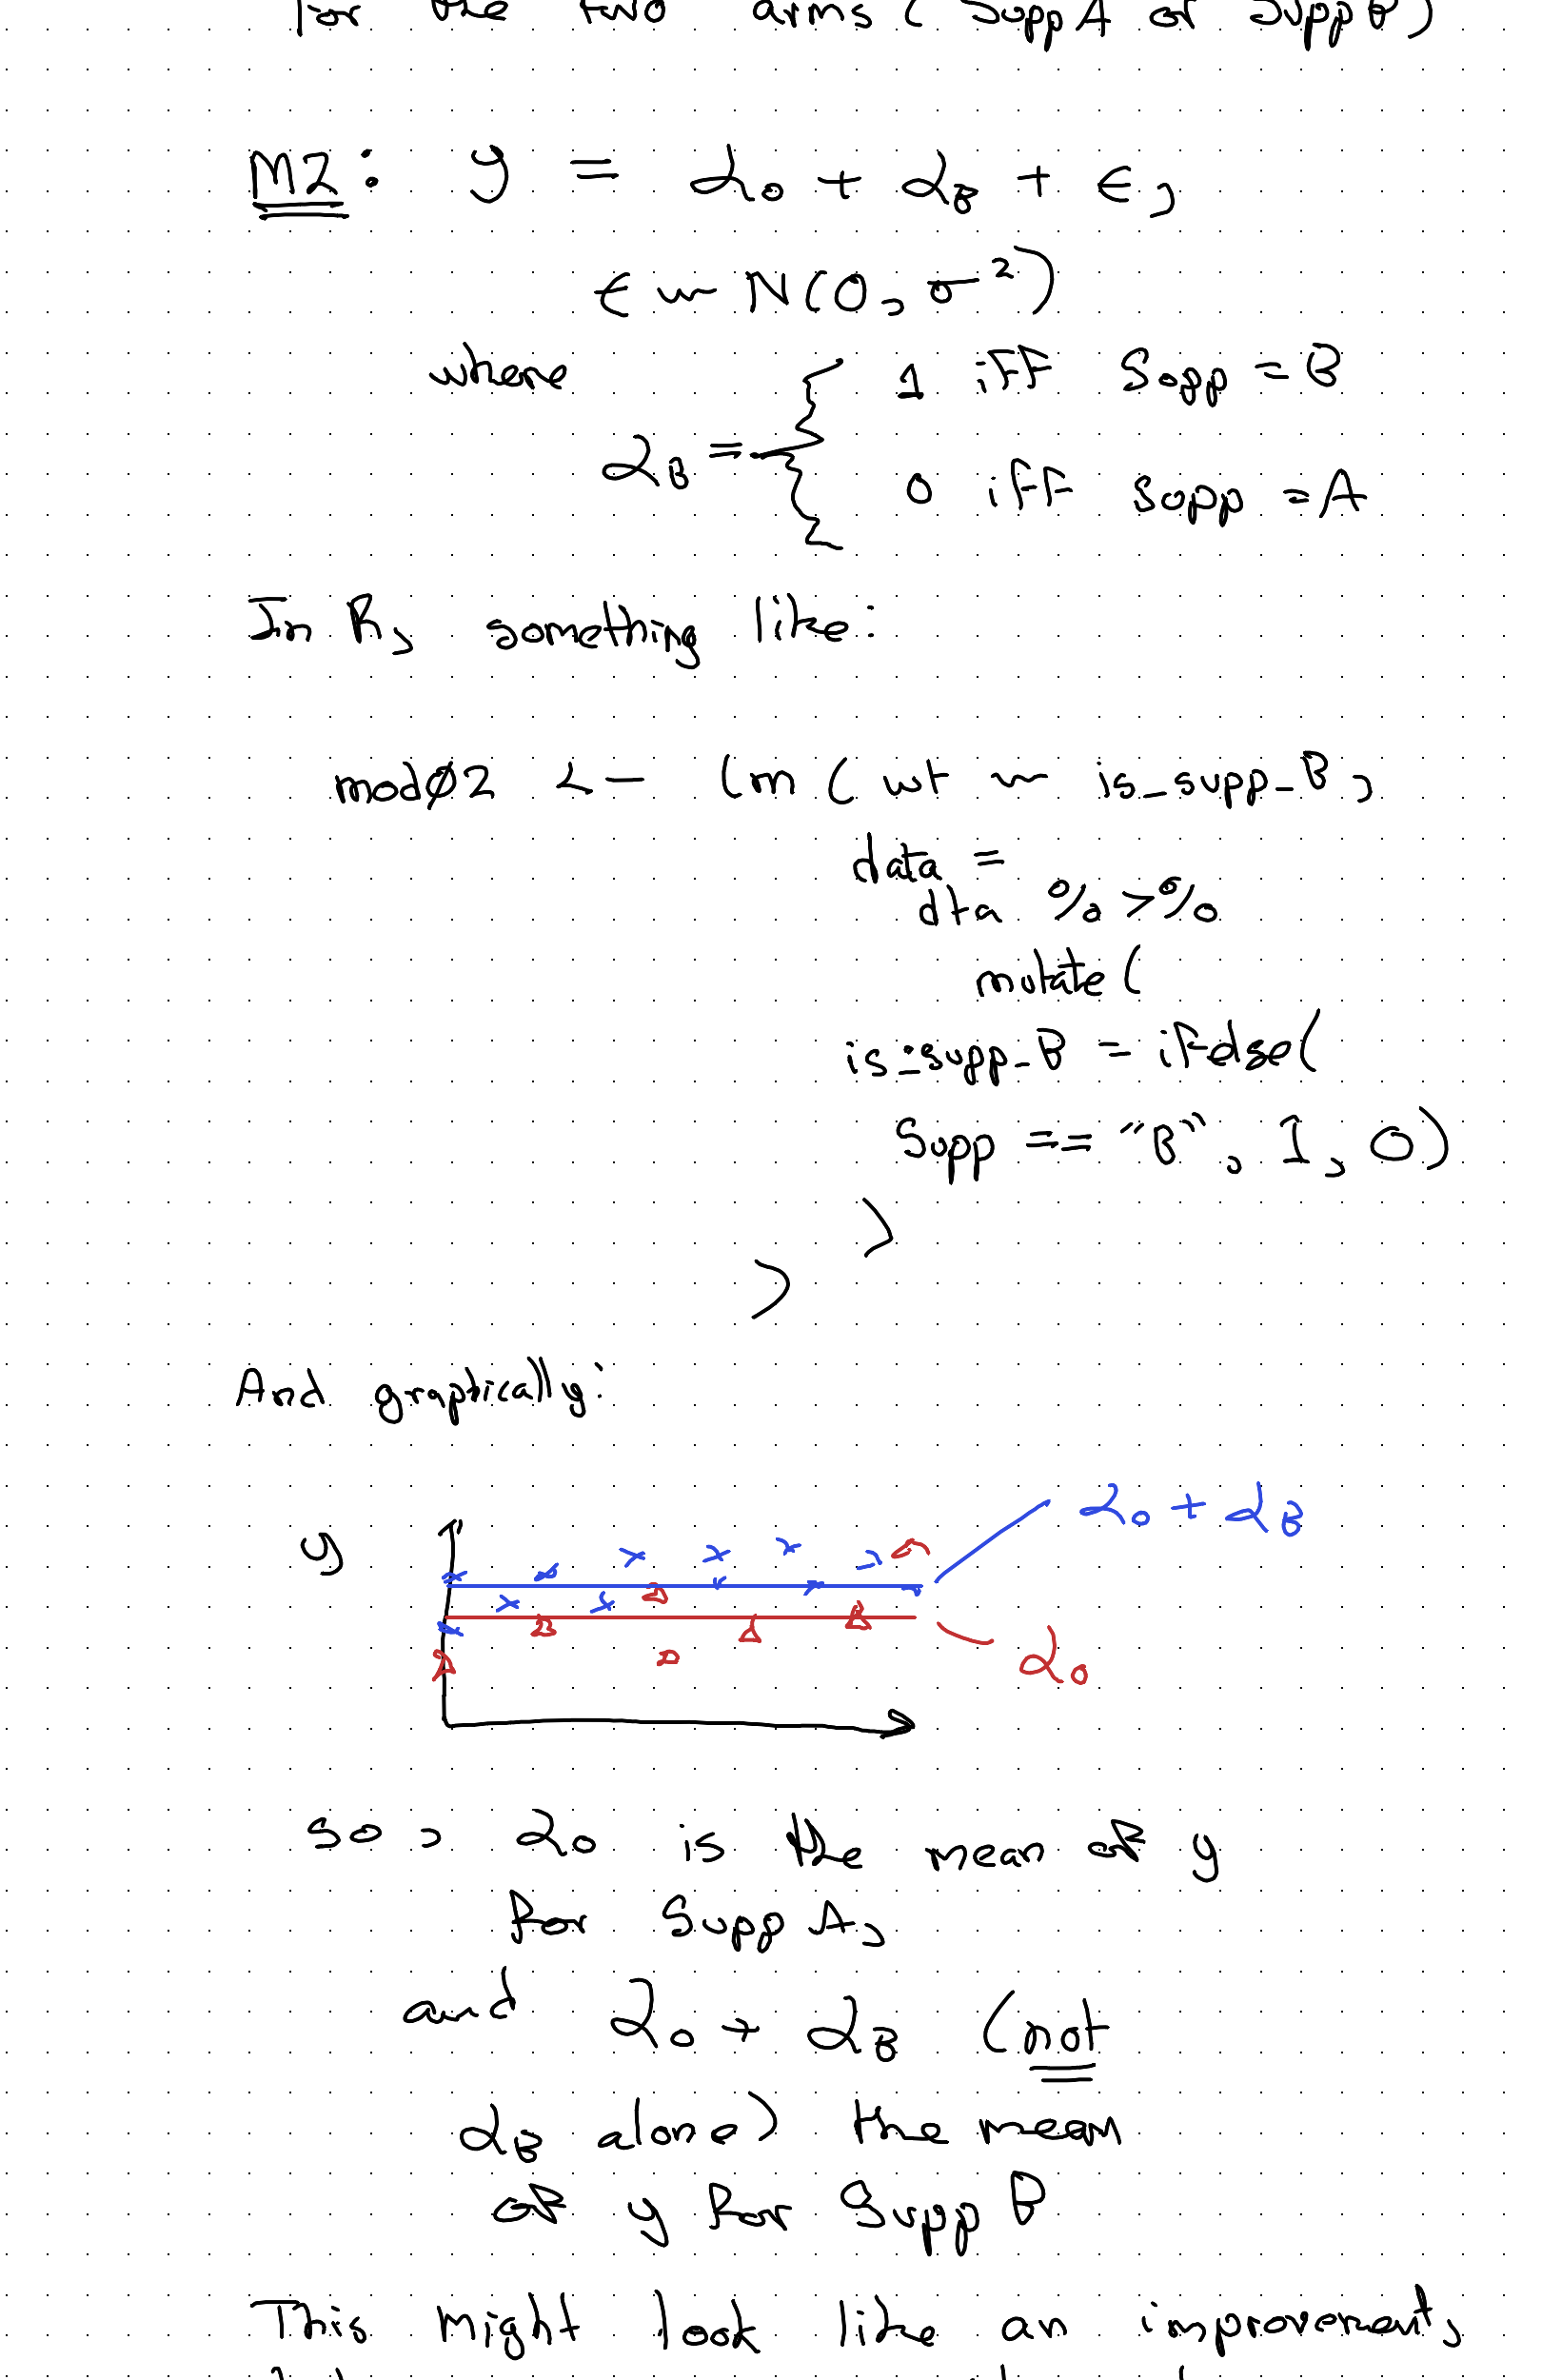 For the two arms (Supp A or Supp B)
M2: y = α₀ + α_B + ε,
ε ~ N(0, σ²)
where
1 iff Supp = B
α_B = {
0 iff Supp = A
In R, something like:
mod02 <- lm( wt ~ is_supp_B,
data =
dta %>%
mutate(
is_supp_B = ifelse(
Supp == "B", 1, 0)
)
)
And graphically:
α₀ + α_B
y
α₀
so, α₀ is the mean of y
for Supp A,
and α₀ + α_B (not
α_B alone) the mean
of y for Supp B
This might look like an improvement,